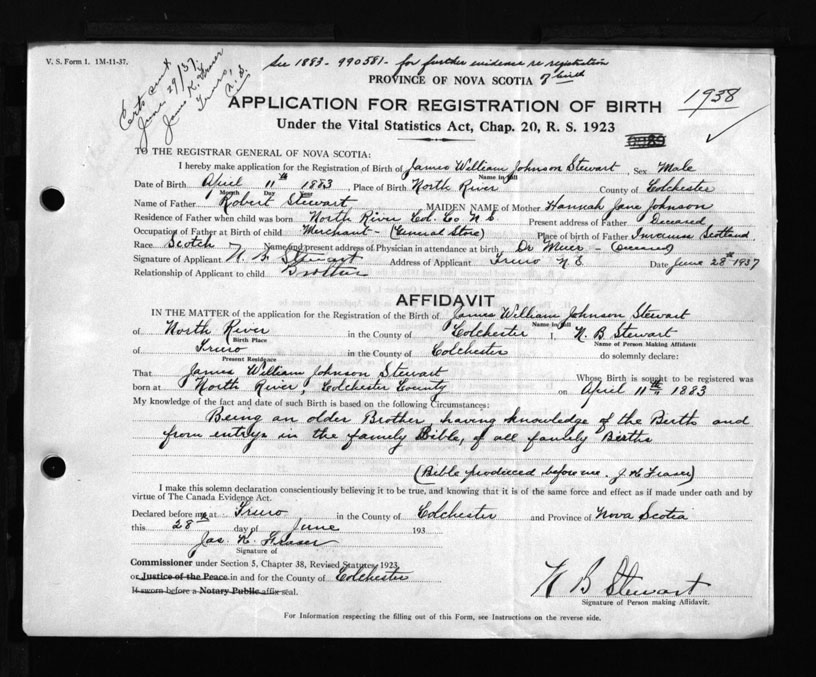 V. S. Form 1. 1M-11-37.
See 1883 - 990581 - for further evidence re registration
of birth
Certs sent
June 29/37.
James K. Fraser
Truro,
N.S.
PROVINCE OF NOVA SCOTIA
1938
APPLICATION FOR REGISTRATION OF BIRTH
Under the Vital Statistics Act, Chap. 20, R. S. 1923
TO THE REGISTRAR GENERAL OF NOVA SCOTIA:
I hereby make application for the Registration of Birth of James William Johnson Stewart, Sex Male
Name in full
Date of Birth April 11th 1883, Place of Birth North River County of Colchester
Month Day Year
Name of Father Robert Stewart MAIDEN NAME of Mother Hannah Jane Johnson
Residence of Father when child was born North River Col. Co N S Present address of Father Deceased
Occupation of Father at Birth of child Merchant - (General Store) Place of birth of Father Inverness Scotland
Race Scotch Name and present address of Physician in attendance at birth Dr Muir - (Deceased)
Signature of Applicant N. B Stewart Address of Applicant Truro N S Date June 28th 1937
Relationship of Applicant to child Brother
AFFIDAVIT
IN THE MATTER of the application for the Registration of the Birth of James William Johnson Stewart
Name in full
of North River in the County of Colchester I, N. B Stewart
(Birth Place Name of Person Making Affidavit
of Truro in the County of Colchester do solemnly declare:
Present Residence
That James William Johnson Stewart Whose Birth is sought to be registered was
born at North River, Colchester County on April 11th 1883
My knowledge of the fact and date of such Birth is based on the following Circumstances:
Being an older Brother, having knowledge of the Birth and
from entrys in the family Bible, of all family Births
(Bible produced before me. J. K Fraser)
I make this solemn declaration conscientiously believing it to be true, and knowing that it is of the same force and effect as if made under oath and by
virtue of The Canada Evidence Act.
Declared before me at Truro in the County of Colchester and Province of Nova Scotia
this 28th day of June 193
Jas. K. Fraser
Signature of
Commissioner under Section 5, Chapter 38, Revised Statutes, 1923
or Justice of the Peace in and for the County of Colchester
If sworn before a Notary Public affix seal.
N B Stewart
Signature of Person making Affidavit.
For Information respecting the filling out of this Form, see Instructions on the reverse side.